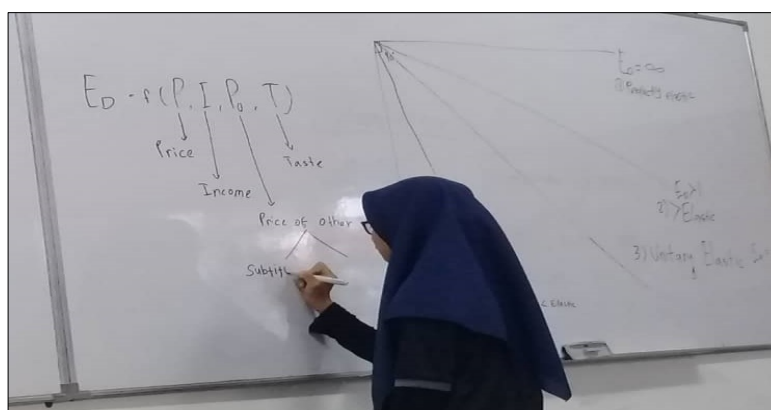 E_D = f (P, I, P_o, T)
Price
Taste
Income
Price of other
Subtit
E_D = ∞
1) Perfectly elastic
E_D > 1
2) > Elastic
3) Unitary Elastic
< Elastic